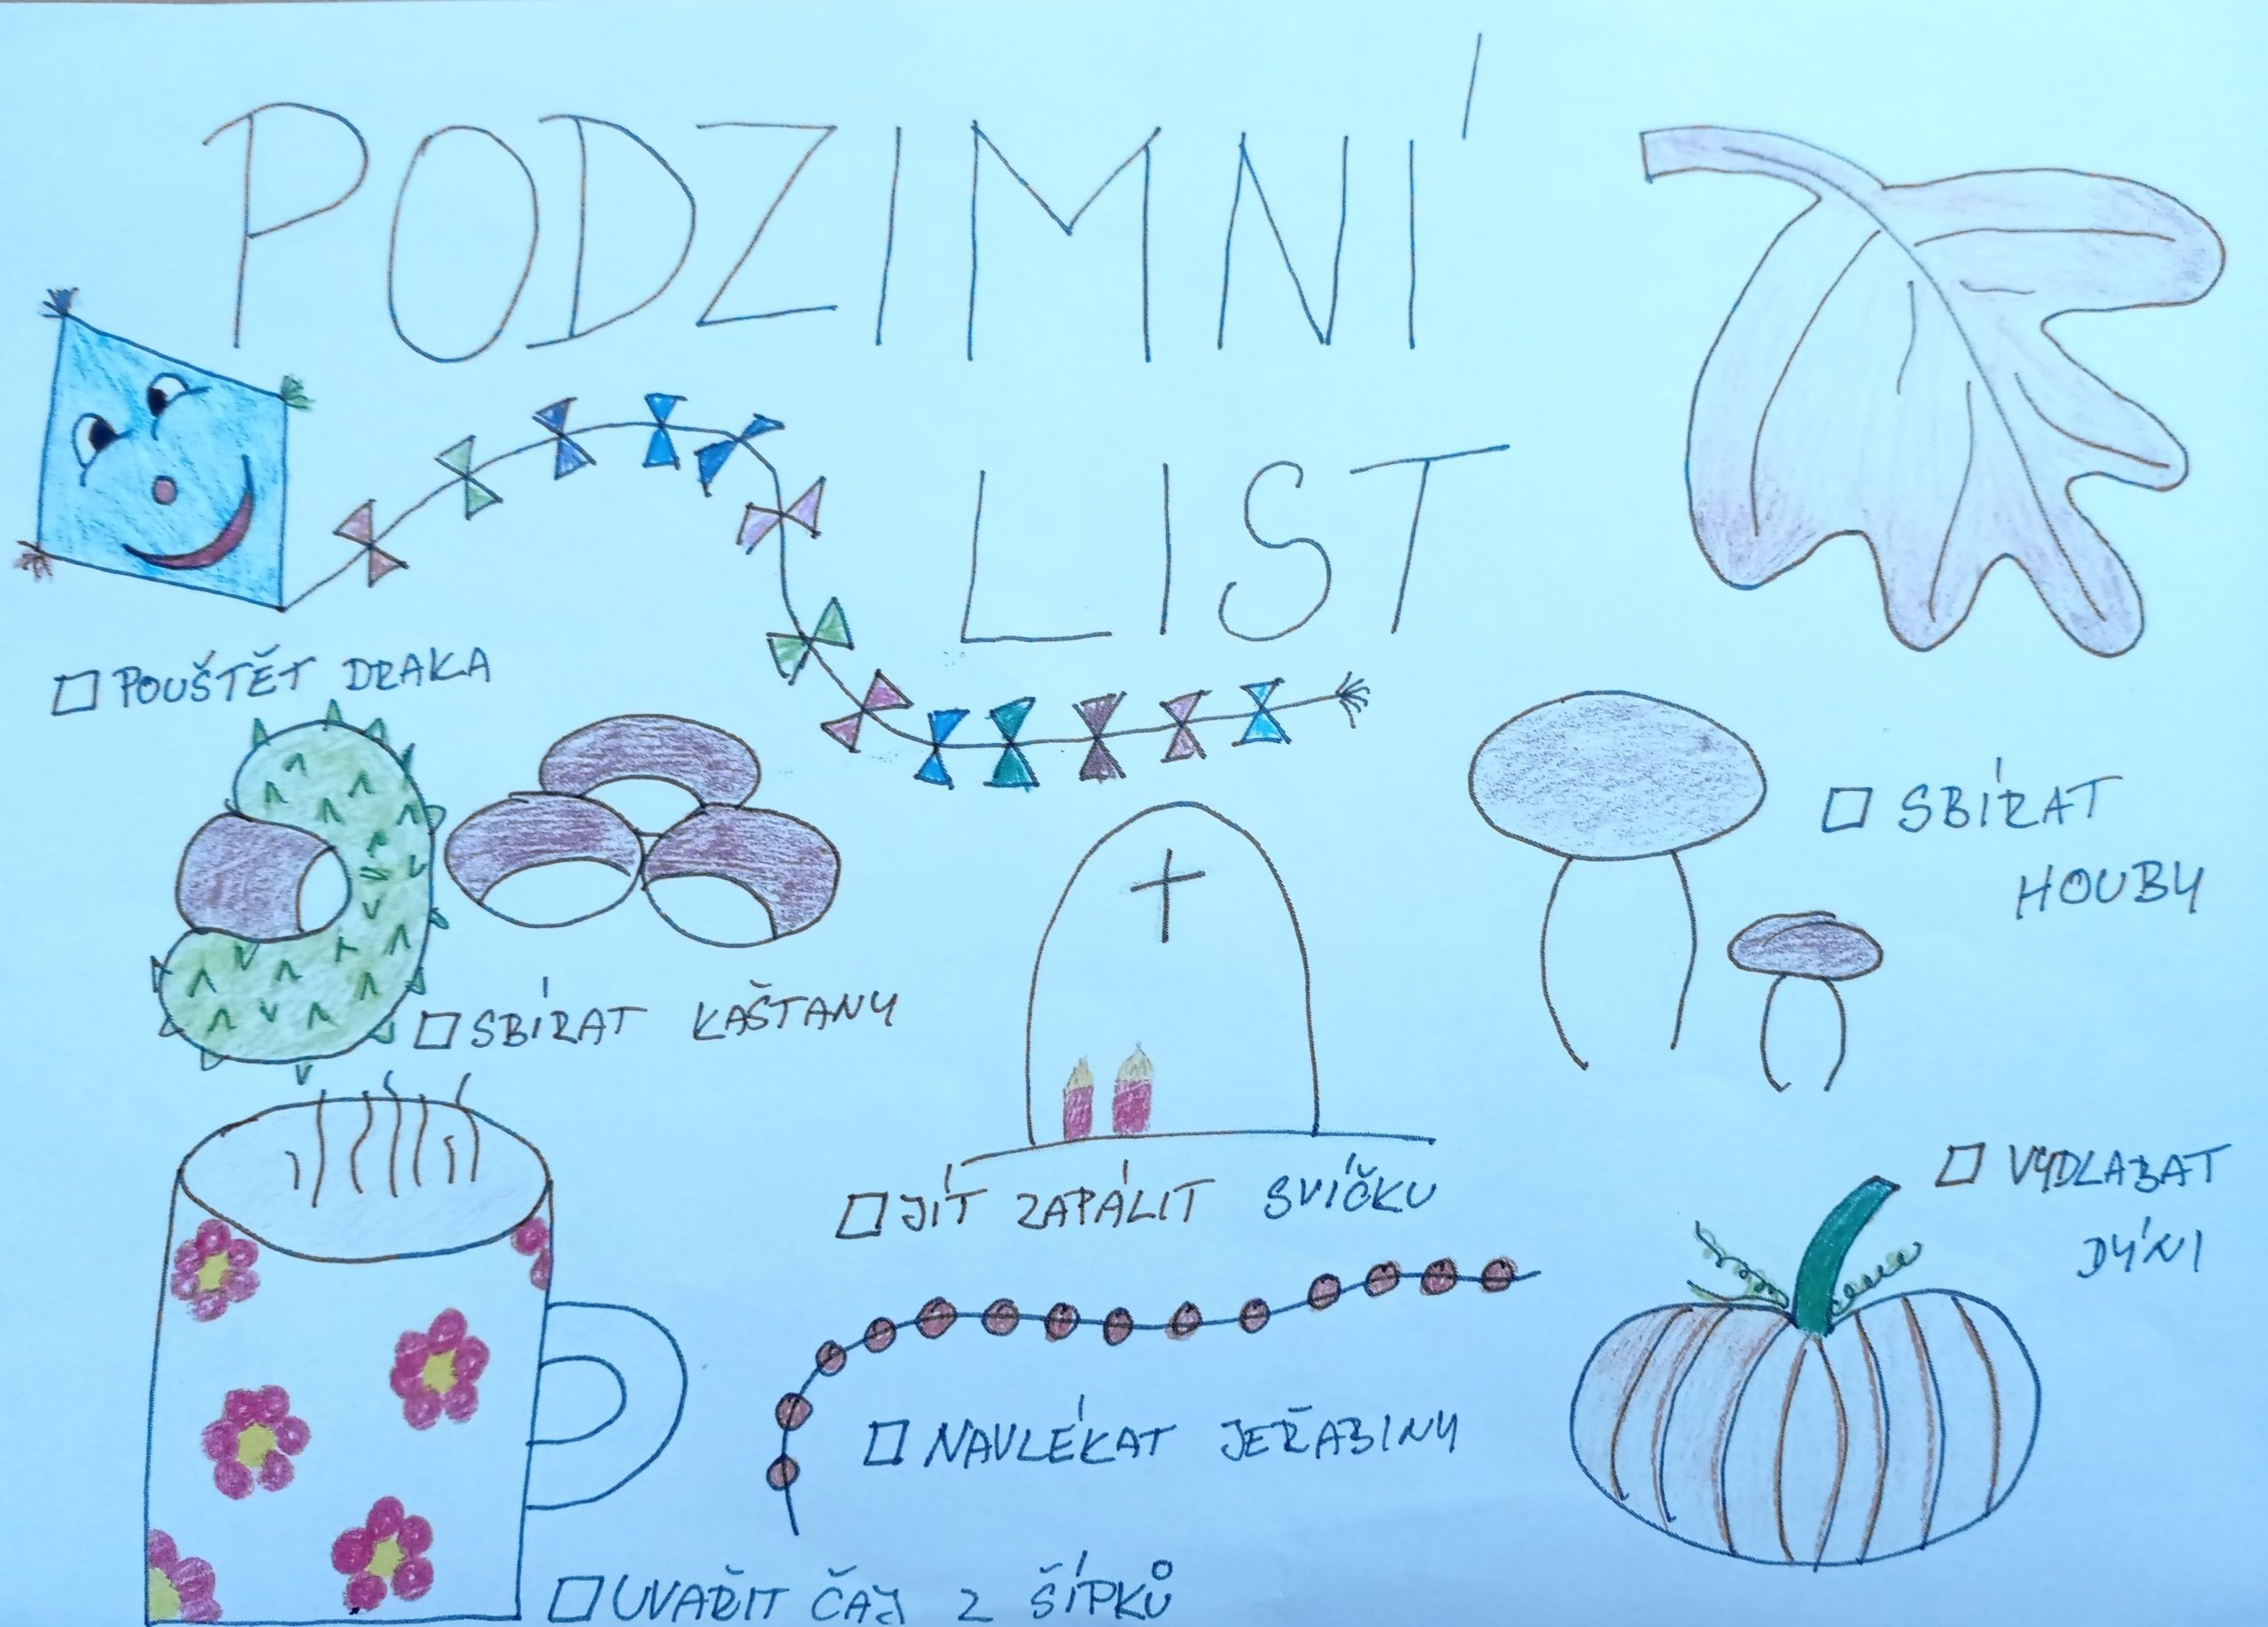 PODZIMNÍ
LIST
POUŠTĚT DRAKA
SBÍRAT
HOUBY
SBÍRAT KAŠTANY
JÍT ZAPÁLIT SVÍČKU
VYDLABAT
DÝNI
NAVLÉKAT JEŘABINY
UVAŘIT ČAJ Z ŠÍPKŮ